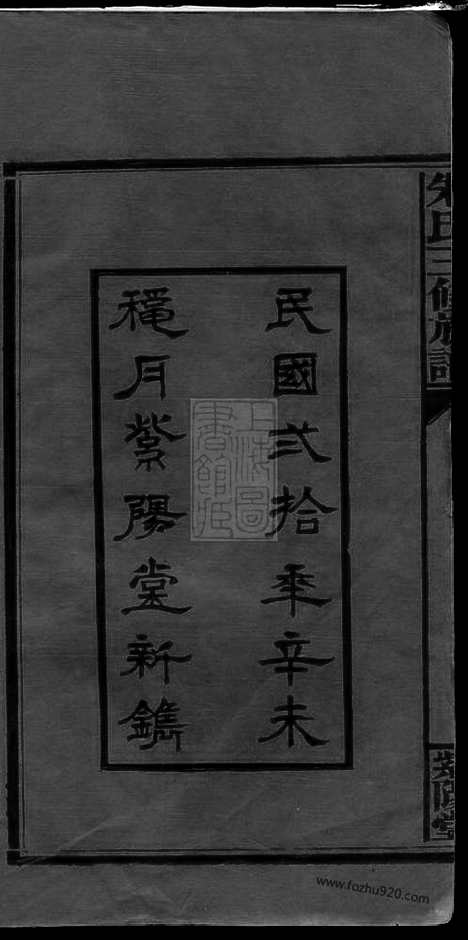 民國弍拾秊辛未
穐月紫陽堂新鐫
朱氏三修族譜
紫陽堂
上海圖書館藏
www.fozhu920.com